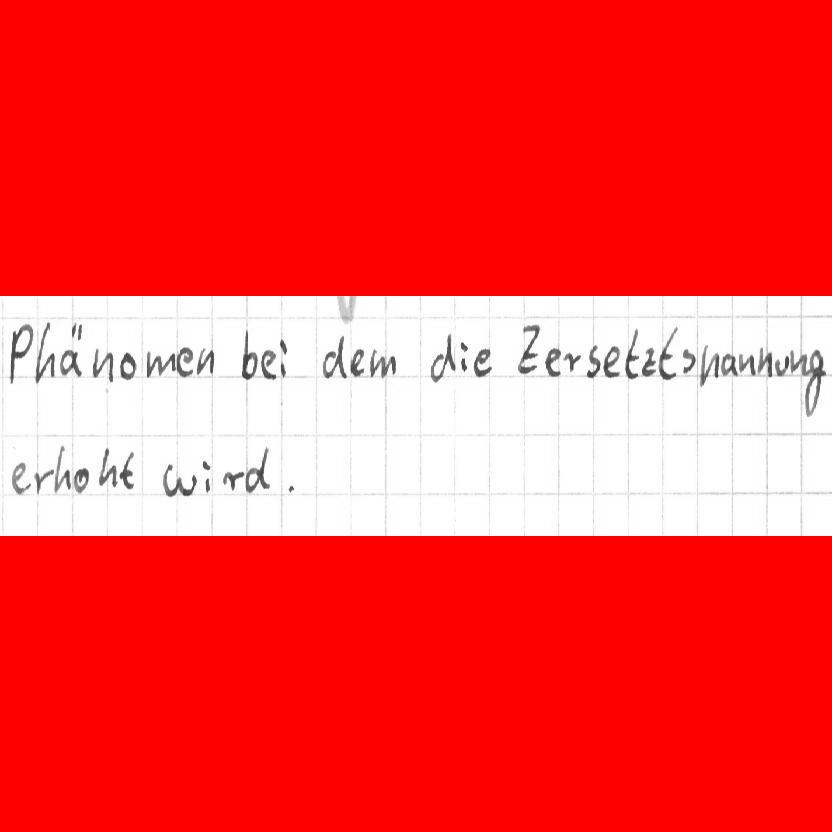 Phänomen bei dem die Zersetztspannung
erhoht wird.